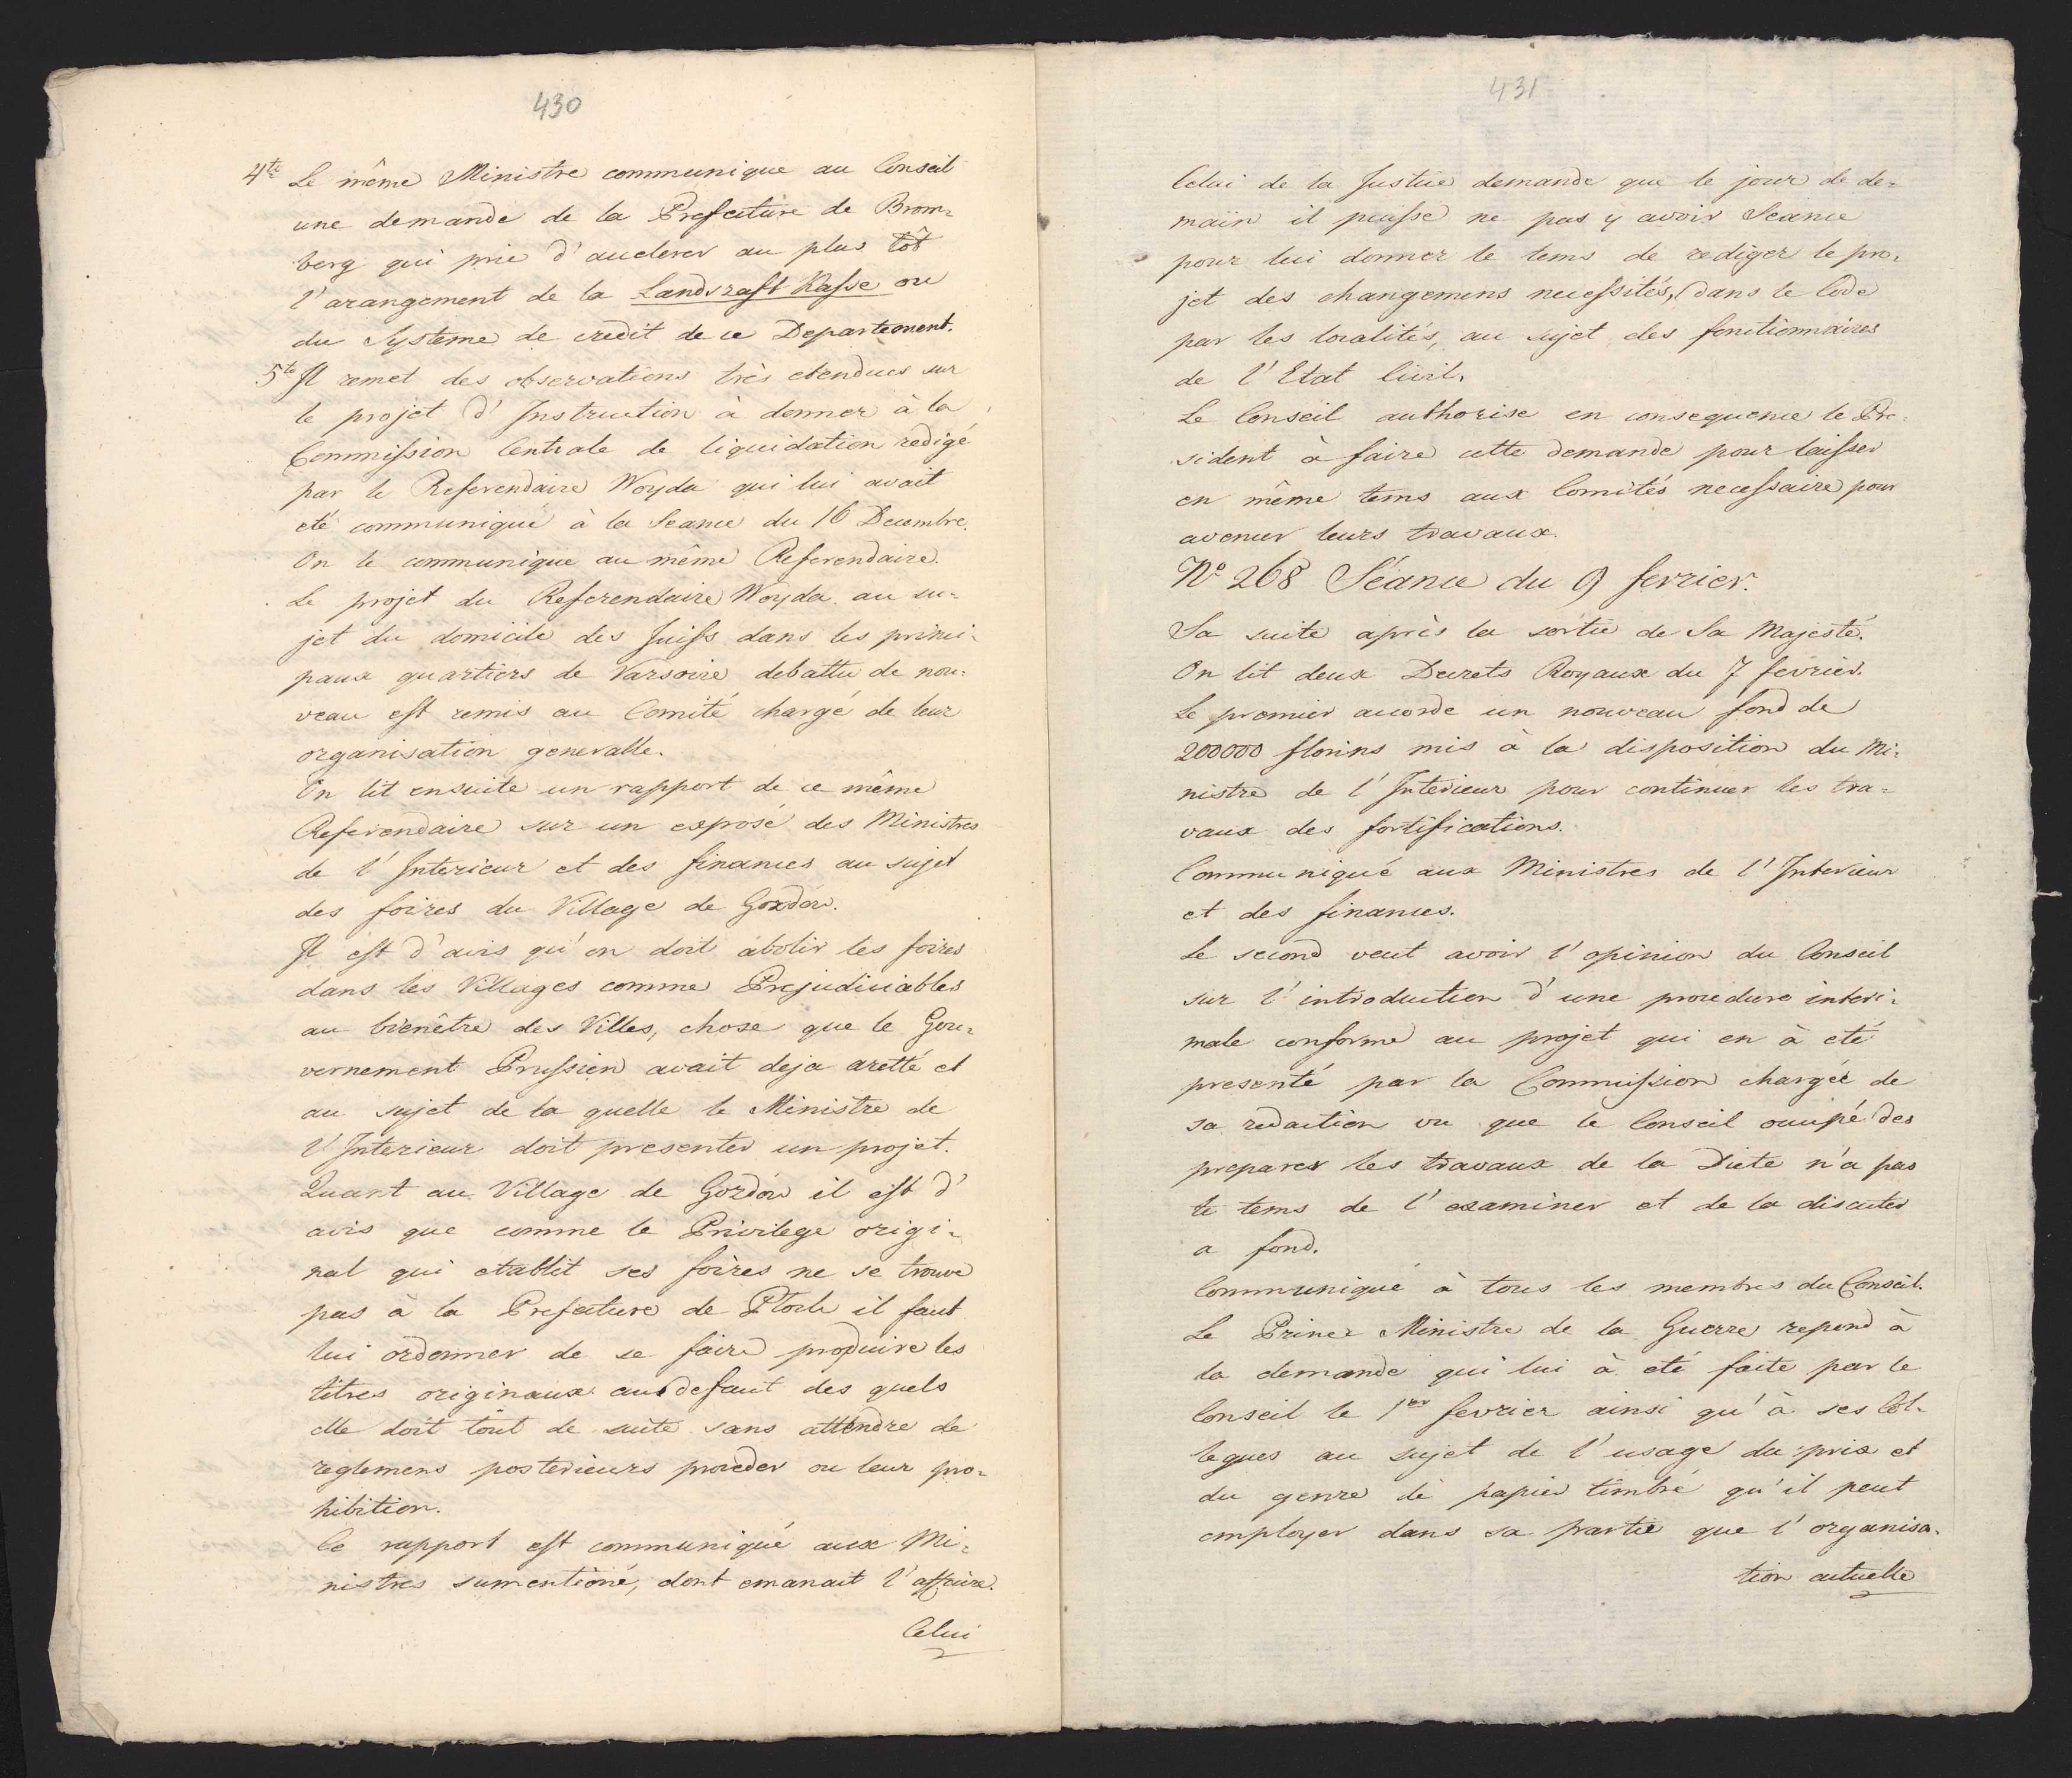 430
4te Le même Ministre communique au Conseil
une demande de la Prefecture de Brom=
berg qui prie d'accelerer au plus tôt
l'arangement de la Landsraft Kasse ou
du Systeme de credit de ce Departement.
5te Il remet des observations très etendues sur
le projet d'Instruction à donner à la
Commission Centrale de liquidation redigé
par le Referendaire Woyda qui lui avait
eté communiqué à la Seance du 16 Decembre.
On le communique au même Referendaire.
Le projet du Referendaire Woyda au su=
jet du domicile des Juifs dans les princi=
paux quartiers de Varsovie debattu de nou=
veau est remis au Comité chargé de leur
organisation generalle.
On lit ensuite un rapport de ce même
Referendaire sur un exposé des Ministres
de l'Interieur et des finances au sujet
des foires du Village de Gozdów.
Il est d'avis qu'on doit abolir les foires
dans les Villages comme Prejudiciables
au bienêtre des Villes, chose que le Gou=
vernement Prussien avait deja aretté et
au sujet de la quelle le Ministre de
l'Interieur doit presenter un projet.
Quant au Village de Gozdów il est d'
avis que comme le Privilege origi=
nal qui etablit ses foires ne se trouve
pas à la Prefecture de Plock il faut
lui ordonner de se faire produire les
titres originaux au defaut des quels
elle doit tout de suite sans attendre de
reglemens posterieurs proceder ou leur pro=
hibition.
Ce rapport est communiqué aux Mi=
nistres sumentioné, dont emanait l'affaire.
Celui
431
Celui de la Justice demande que le jour de de=
main il puisse ne pas y avoir Seance
pour lui donner le tems de rediger le pro=
jet des changemens necessités, dans le Code
par les localités, au sujet des fonctionnaires
de l'Etat Civil.
Le Conseil authorise en consequence le Pre=
sident à faire cette demande pour laisser
en même tems aux Comités necessaire pour
avencer leurs travaux.
No 268 Séance du 9 fevrier.
Sa suite après la sortie de Sa Majesté.
On lit deux Decrets Royaux du 7 fevrier.
Le premier accorde un nouveau fond de
200000 florins mis à la disposition du Mi=
nistre de l'Interieur pour continuer les tra=
vaux des fortifications.
Communiqué aux Ministres de l'Interieur
et des finances.
Le second veut avoir l'opinion du Conseil
sur l'introduction d'une procedure interi=
male conforme au projet qui en à eté
presenté par la Commission chargée de
sa redaction vu que le Conseil occupé des
preparer les travaux de la Diete n'a pas
le tems de l'examiner et de la discuter
a fond.
Communiqué à tous les membres du Conseil.
Le Prince Ministre de la Guerre repond à
la demande qui lui à eté faite par le
Conseil le 1er fevrier ainsi qu'à ses Col=
legues au sujet de l'usage du prix et
du genre de papier timbré qu'il peut
employer dans sa partie que l'organisa=
tion actuelle